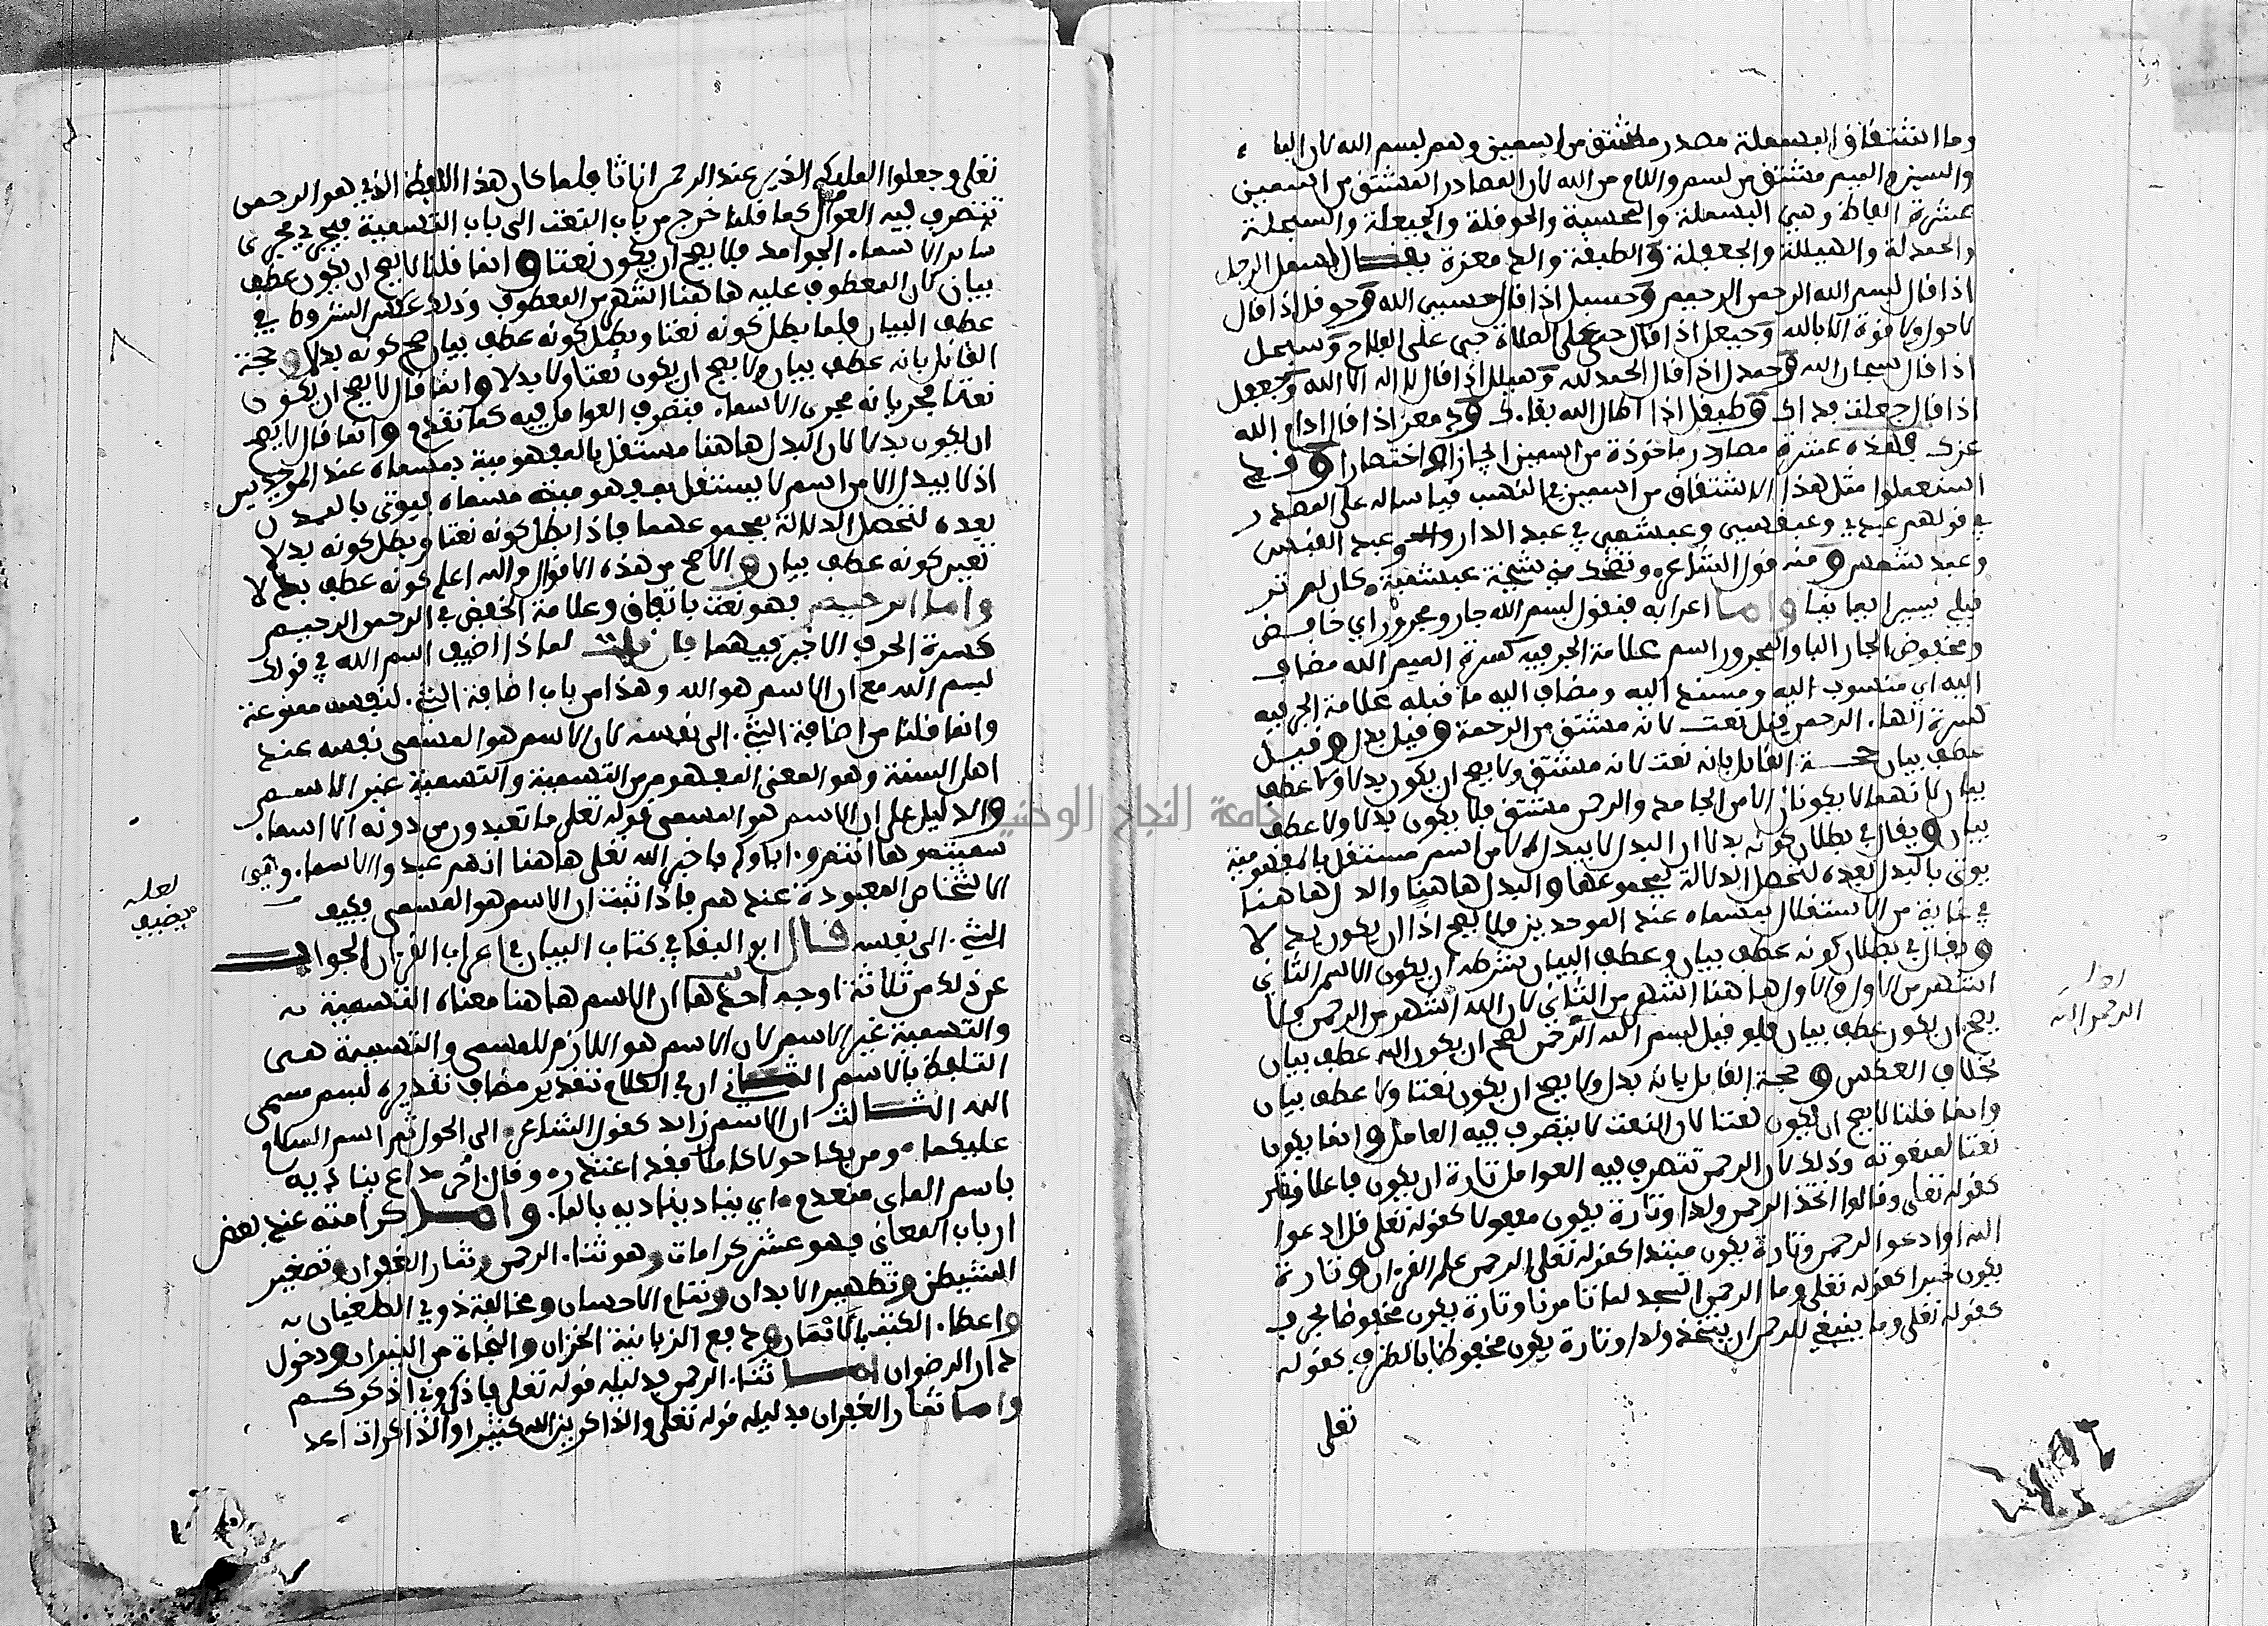 وما اشتقاق البسملة مصدر مشتق من اسمين وهم بسم الله لان الباء
والسين والميم مشتق من بسم واللام من الله لان المصادر المشتق من اسمين
عشرة الفاظ وهي البسملة والحسبة والحوقلة والحيعلة والسبحلة
والحمدلة والهيللة والجعفلة والطبقة والدمعزة يقال بسمل الرجل
اذا قال بسم الله الرحمن الرحيم وحسبل اذا قال حسبي الله وحوقل اذا قال
لا حول ولا قوة الا بالله وحيعل اذا قال حي على الصلاة حي على الفلاح وسبحل
اذا قال سبحان الله وحمدل اذا قال الحمد لله وهيلل اذا قال لا اله الا الله وجعفل
اذا قال جعلت فداك وطبقل اذا اطال الله بقاءك ودمعز اذا قال ادام الله
عزك فهذه عشرة مصادر ماخوذة من اسمين ايجازا واختصارا وقد
استعملوا مثل هذا الاشتقاق من اسمين في النسب قياسا له على المصدر
في قولهم عبدري وعبقسي وعبشمي في عبد الدار وعبد القيس
وعبد شمس ومنه قول الشاعر وتضحك مني شيخة عبشمية كان لم تر
قبلي اسيرا يمانيا واما اعرابه فتقول بسم الله جار ومجرور اي خافض
ومخفوض الجار الباء والمجرور اسم علامة الجر فيه كسرة الميم الله مضاف
اليه اي منسوب اليه ومسند اليه ومضاف اليه ما قبله علامة الجر فيه
كسرة الهاء الرحمن قيل نعت لانه مشتق من الرحمة وقيل بدل وقيل
عطف بيان حجة القائل بانه نعت لانه مشتق ولا يصح ان يكون بدلا ولا عطف
بيان لانهما لا يكونان الا من الجامد والرحمن مشتق فلا يكون بدلا ولا عطف
بيان ويقال في بطلان كونه بدلا ان البدل لا يبدل الا من اسم مستقل بالمفهومية
يوتى بالبدل بعده لتحصل الدلالة بمجموعهما والبدل هاهنا والد هاهنا
في غاية من الاستقلال بمسماه عند الموحدين فلا يصح اذا ان يكون بدلا
ويقال في بطلان كونه عطف بيان وعطف البيان شرطه ان يكون الاسم الثاني
اشهر من الاول والاول هاهنا اشهر من الثاني لان الله اشهر من الرحمن فلا
يصح ان يكون عطف بيان فلو قيل بسم الله الرحمن لصح ان يكون الله عطف بيان
بخلاف العكس وحجة القائل بانه بدل ولا يصح ان يكون نعتا ولا عطف بيان
وانما قلنا لا يصح ان يكون نعتا لان النعت لا يتصرف فيه العامل وانما يكون
نعتا لمنعوته وذلك لان الرحمن تتصرف فيه العوامل تارة ان يكون فاعلا
كقوله تعلى وقالوا اتخذ الرحمن ولدا وتارة يكون مفعولا كقوله تعلى قل ادعوا
الله او ادعوا الرحمن وتارة يكون مبتدا كقوله تعلى الرحمن علم القرءان وتارة
يكون خبرا كقوله تعلى وما الرحمن انسجد لما تامرنا وتارة يكون مخفوضا بحرف
كقوله تعلى وما ينبغي للرحمن ان يتخذ ولدا وتارة يكون مخفوظا بالظرف كقوله
تعلى
الرحمن الله
تعلى وجعلوا الملايكة الذين عند الرحمن اناثا فلما كان هذا اللفظ الذي هو الرحمن
تتصرف فيه العوامل كما قلنا خرج من باب النعت الى باب التسمية فيجري مجرى
سائر الاسماء الجوامد فلا يصح ان يكون نعتا وانما قلنا لا يصح ان يكون عطف
بيان لان المعطوف عليه هاهنا اشهر من المعطوف وذلك عكس الشروط في
عطف البيان فلما بطل كونه نعتا وبطل كونه عطف بيان صح كونه بدلا وحجة
القائل بانه عطف بيان ولا يصح ان يكون نعتا ولا بدلا وانما قال لا يصح ان يكون
نعتا لجريانه مجرى الاسماء فتصرف العوامل فيه كما تقدم وانما قال لا يصح
ان يكون بدلا لان البدل هاهنا مستقل بالمفهومية بمسماه عند الموحدين
اذ لا يبدل الا من اسم لا يستقل بمفهومية مسماه فيوتى بالبدل
بعده لتحصل الدلالة بمجموعهما فاذا بطل كونه نعتا وبطل كونه بدلا
تعين كونه عطف بيان والاصح من هذه الاقوال والله اعلم كونه عطف بدلا
واما الرحيم فهو نعت باتفاق وعلامة الخفض في الرحمن الرحيم
كسرة الحرف الاخير فيهما فان قلت لماذا اضيف اسم الله في قولك
بسم الله مع ان الاسم هو الله وهذا من باب اضافة الشيء لنفسه ممنوعة
وانما قلنا من اضافة الشيء الى نفسه لان الاسم هو المسمى نفسه عند
اهل السنة وهو المعنى المفهوم من التسمية والتسمية غير الاسم
والدليل على ان الاسم هو المسمى قوله تعلى ما تعبدون من دونه الا اسماء
سميتموها انتم وءاباؤكم فاخبر الله تعلى هاهنا انهم عبدوا الاسماء وهي
الاشخاص المعبودة عندهم فاذا ثبت ان الاسم هو المسمى فكيف
لعله
يضيف
الشيء الى نفسه قال ابو البقا في كتاب البيان في اعراب القرءان الجواب
عن ذلك من ثلاثة اوجه احدها ان الاسم هاهنا معناه التسمية
والتسمية غير الاسم لان الاسم هو اللازم للمسمى والتسمية هي
التلفظ بالاسم الثاني ان في الكلام تقدير مضاف تقديره بسم مسمى
الله الثالث ان الاسم زائد كقول الشاعر الى الحول ثم اسم السلام
عليكما ومن يبك حولا كاملا فقد اعتذر وقال اخر داع يناديه
باسم الماء منعدم اي يناد يناديه بالماء واما كرامته عند بعض
ارباب المعاني فهو عشر كرامات وهو ثناء الرحمن وثمار الغفران وتصغير
الشيطان وتطهير الابدان وتمام الاحسان ومخالفة ذوي الطغيان
واعطاء الكتب بالايمان ودفع الزبانية الخزان والنجاة من النيران ودخول
دار الرضوان اما ثناء الرحمن فدليله قوله تعلى فاذكروني اذكركم
واما ثمار الغفران فدليله قوله تعلى والذاكرين الله كثيرا والذاكرات اعد
جامعة النجاح الوطنية